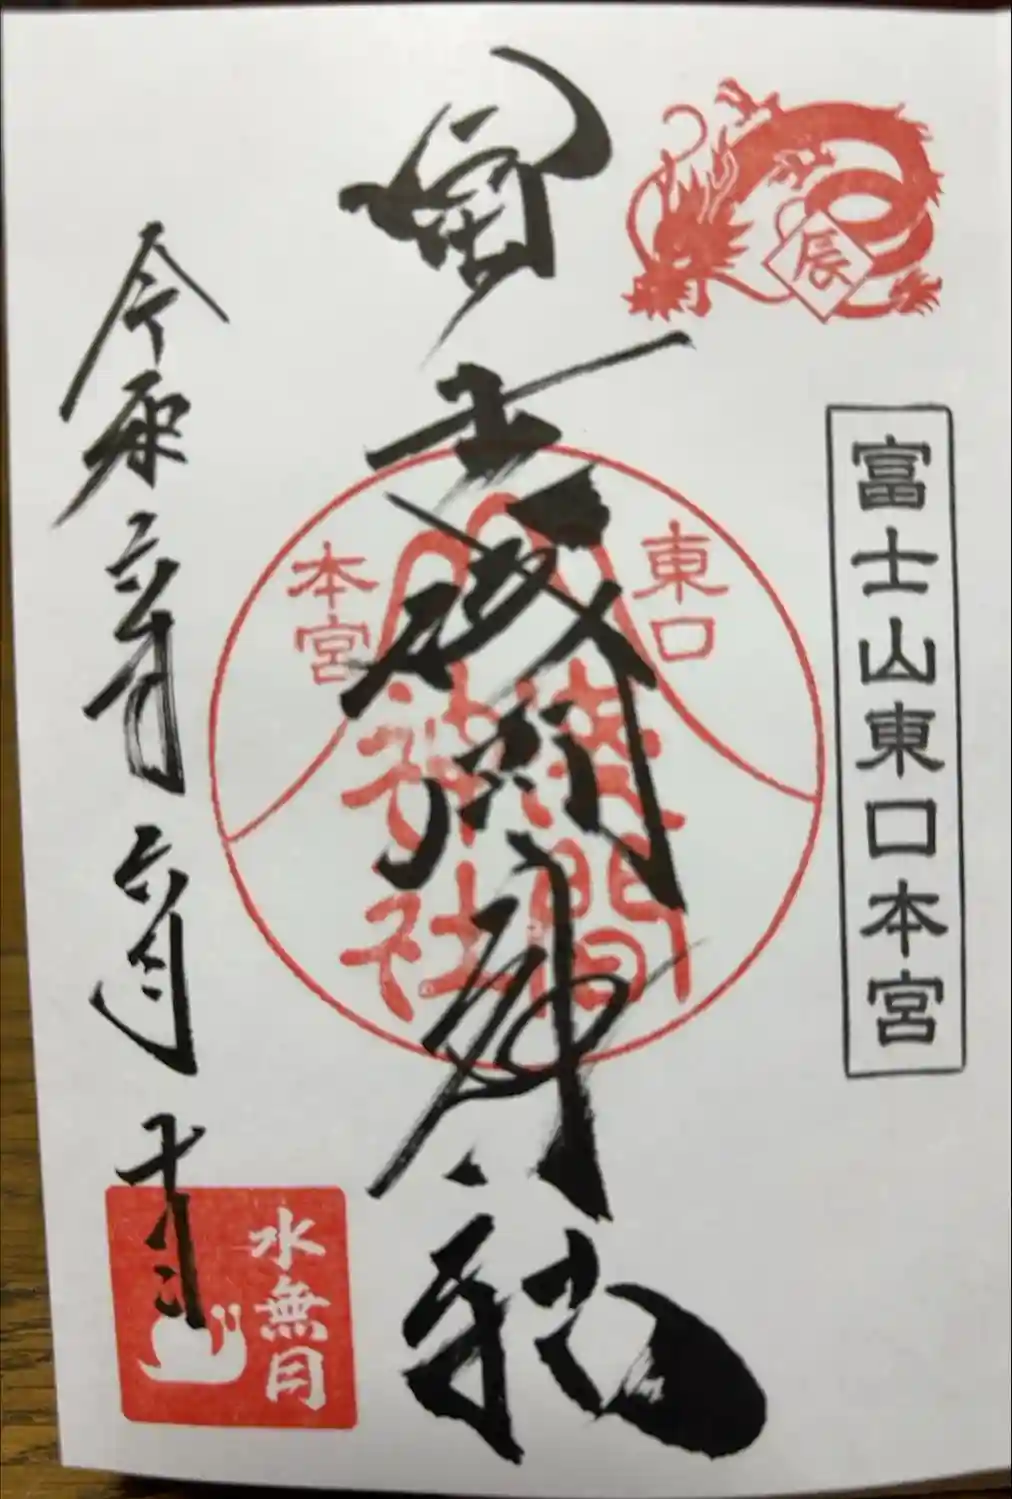 辰
富士山東口本宮
冨士浅間神社
東口
本宮
浅間
神社
令和六年六月十一日
水無月